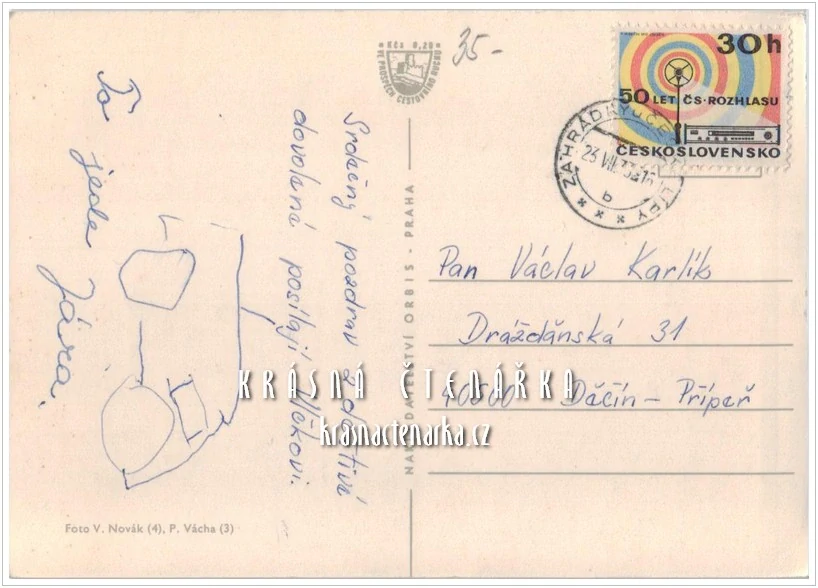 Kčs 0,20
VE PROSPĚCH CESTOVNÍHO RUCHU
35-
30h
50 LET ČS. ROZHLASU
ČESKOSLOVENSKO
ZAHRÁDKY U ČESKÉ LÍPY
23.VII.73
b
Srdečný pozdrav z
dovolené posílají Vlčkovi.
To jede Jára.
NAKLADATELSTVÍ ORBIS - PRAHA
Pan Václav Karlík
Drážďánská 31
40500 Děčín - Přípeř
KRÁSNÁ ČTENÁŘKA
krasnactenarka.cz
Foto V. Novák (4), P. Vácha (3)